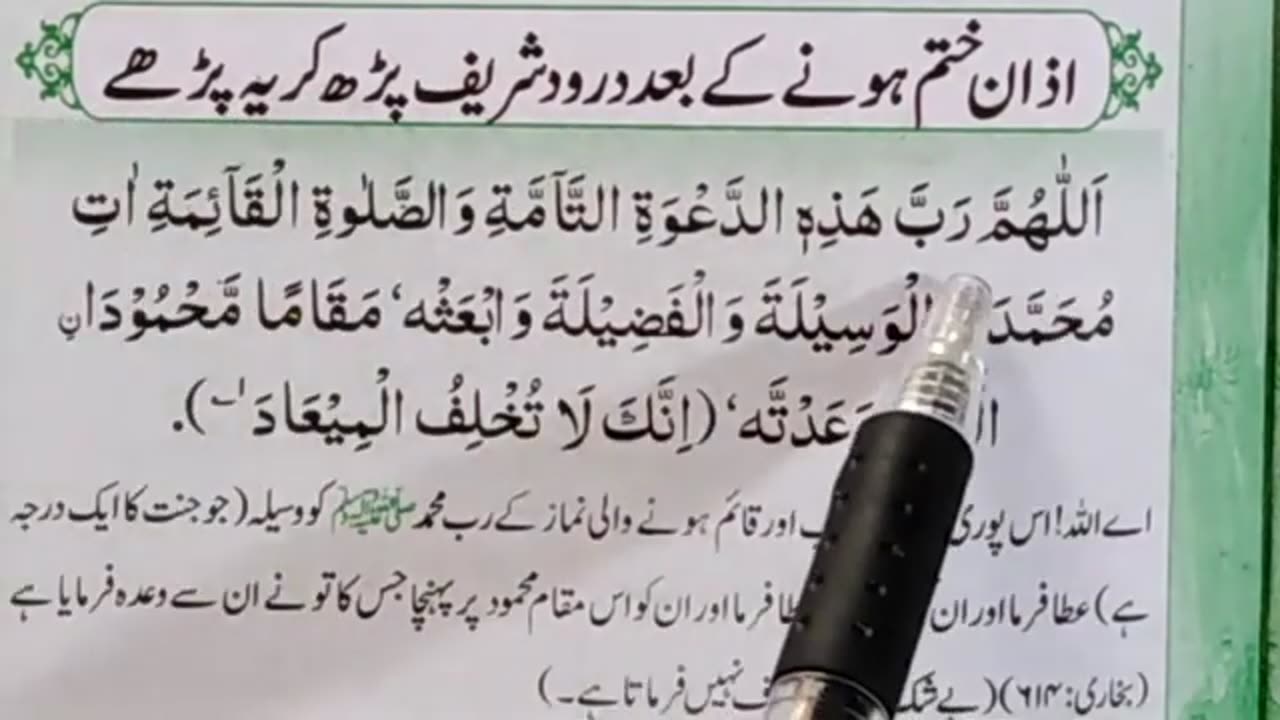 اذان ختم ہونے کے بعد درود شریف پڑھ کر یہ پڑھے
اَللّٰهُمَّ رَبَّ هَذِهِ الدَّعْوَةِ التَّآمَّةِ وَالصَّلٰوةِ الْقَآئِمَةِ اٰتِ
مُحَمَّدَ الْوَسِيْلَةَ وَالْفَضِيْلَةَ وَابْعَثْه‘ مَقَامًا مَّحْمُوْدَانِ
وَعَدْتَّه‘ (اِنَّكَ لَا تُخْلِفُ الْمِيْعَادَ).
اے اللہ! اس پوری اور قائم ہونے والی نماز کے رب محمد ﷺ کو وسیلہ (جو جنت کا ایک درجہ
ہے) عطا فرما اور ان عطا فرما اور ان کو اس مقام محمود پر پہنچا جس کا تو نے ان سے وعدہ فرمایا ہے
(بخاری: ۶۱۴) (بے شک نہیں فرماتا ہے۔)